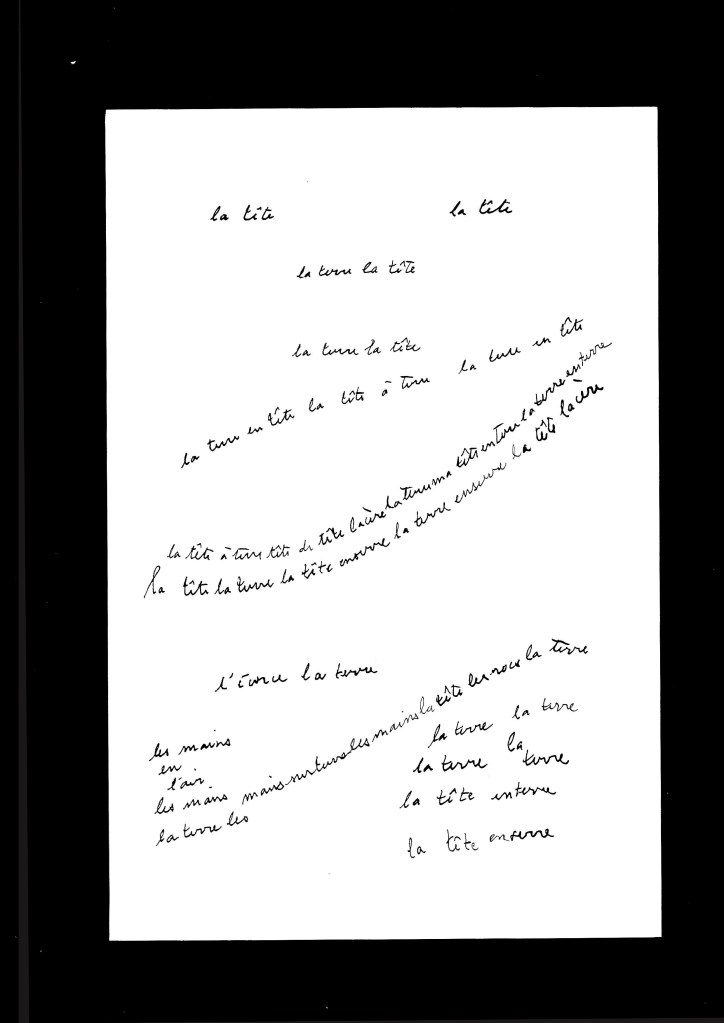 la tête la tête
la terre la tête
la terre la tête
la terre en tête la tête à terre la terre en tête
la tête à terre tête de tête lacère la terre ma tête enterre la terre enterre
la tête la terre la tête enserre la terre enserre la tête lacère
l'écorce la terre
les mains
en
l'air
les mains mains sur terre les mains la tête les nous la terre
la terre les
la terre la terre
la terre la terre
la tête enterre
la tête enserre